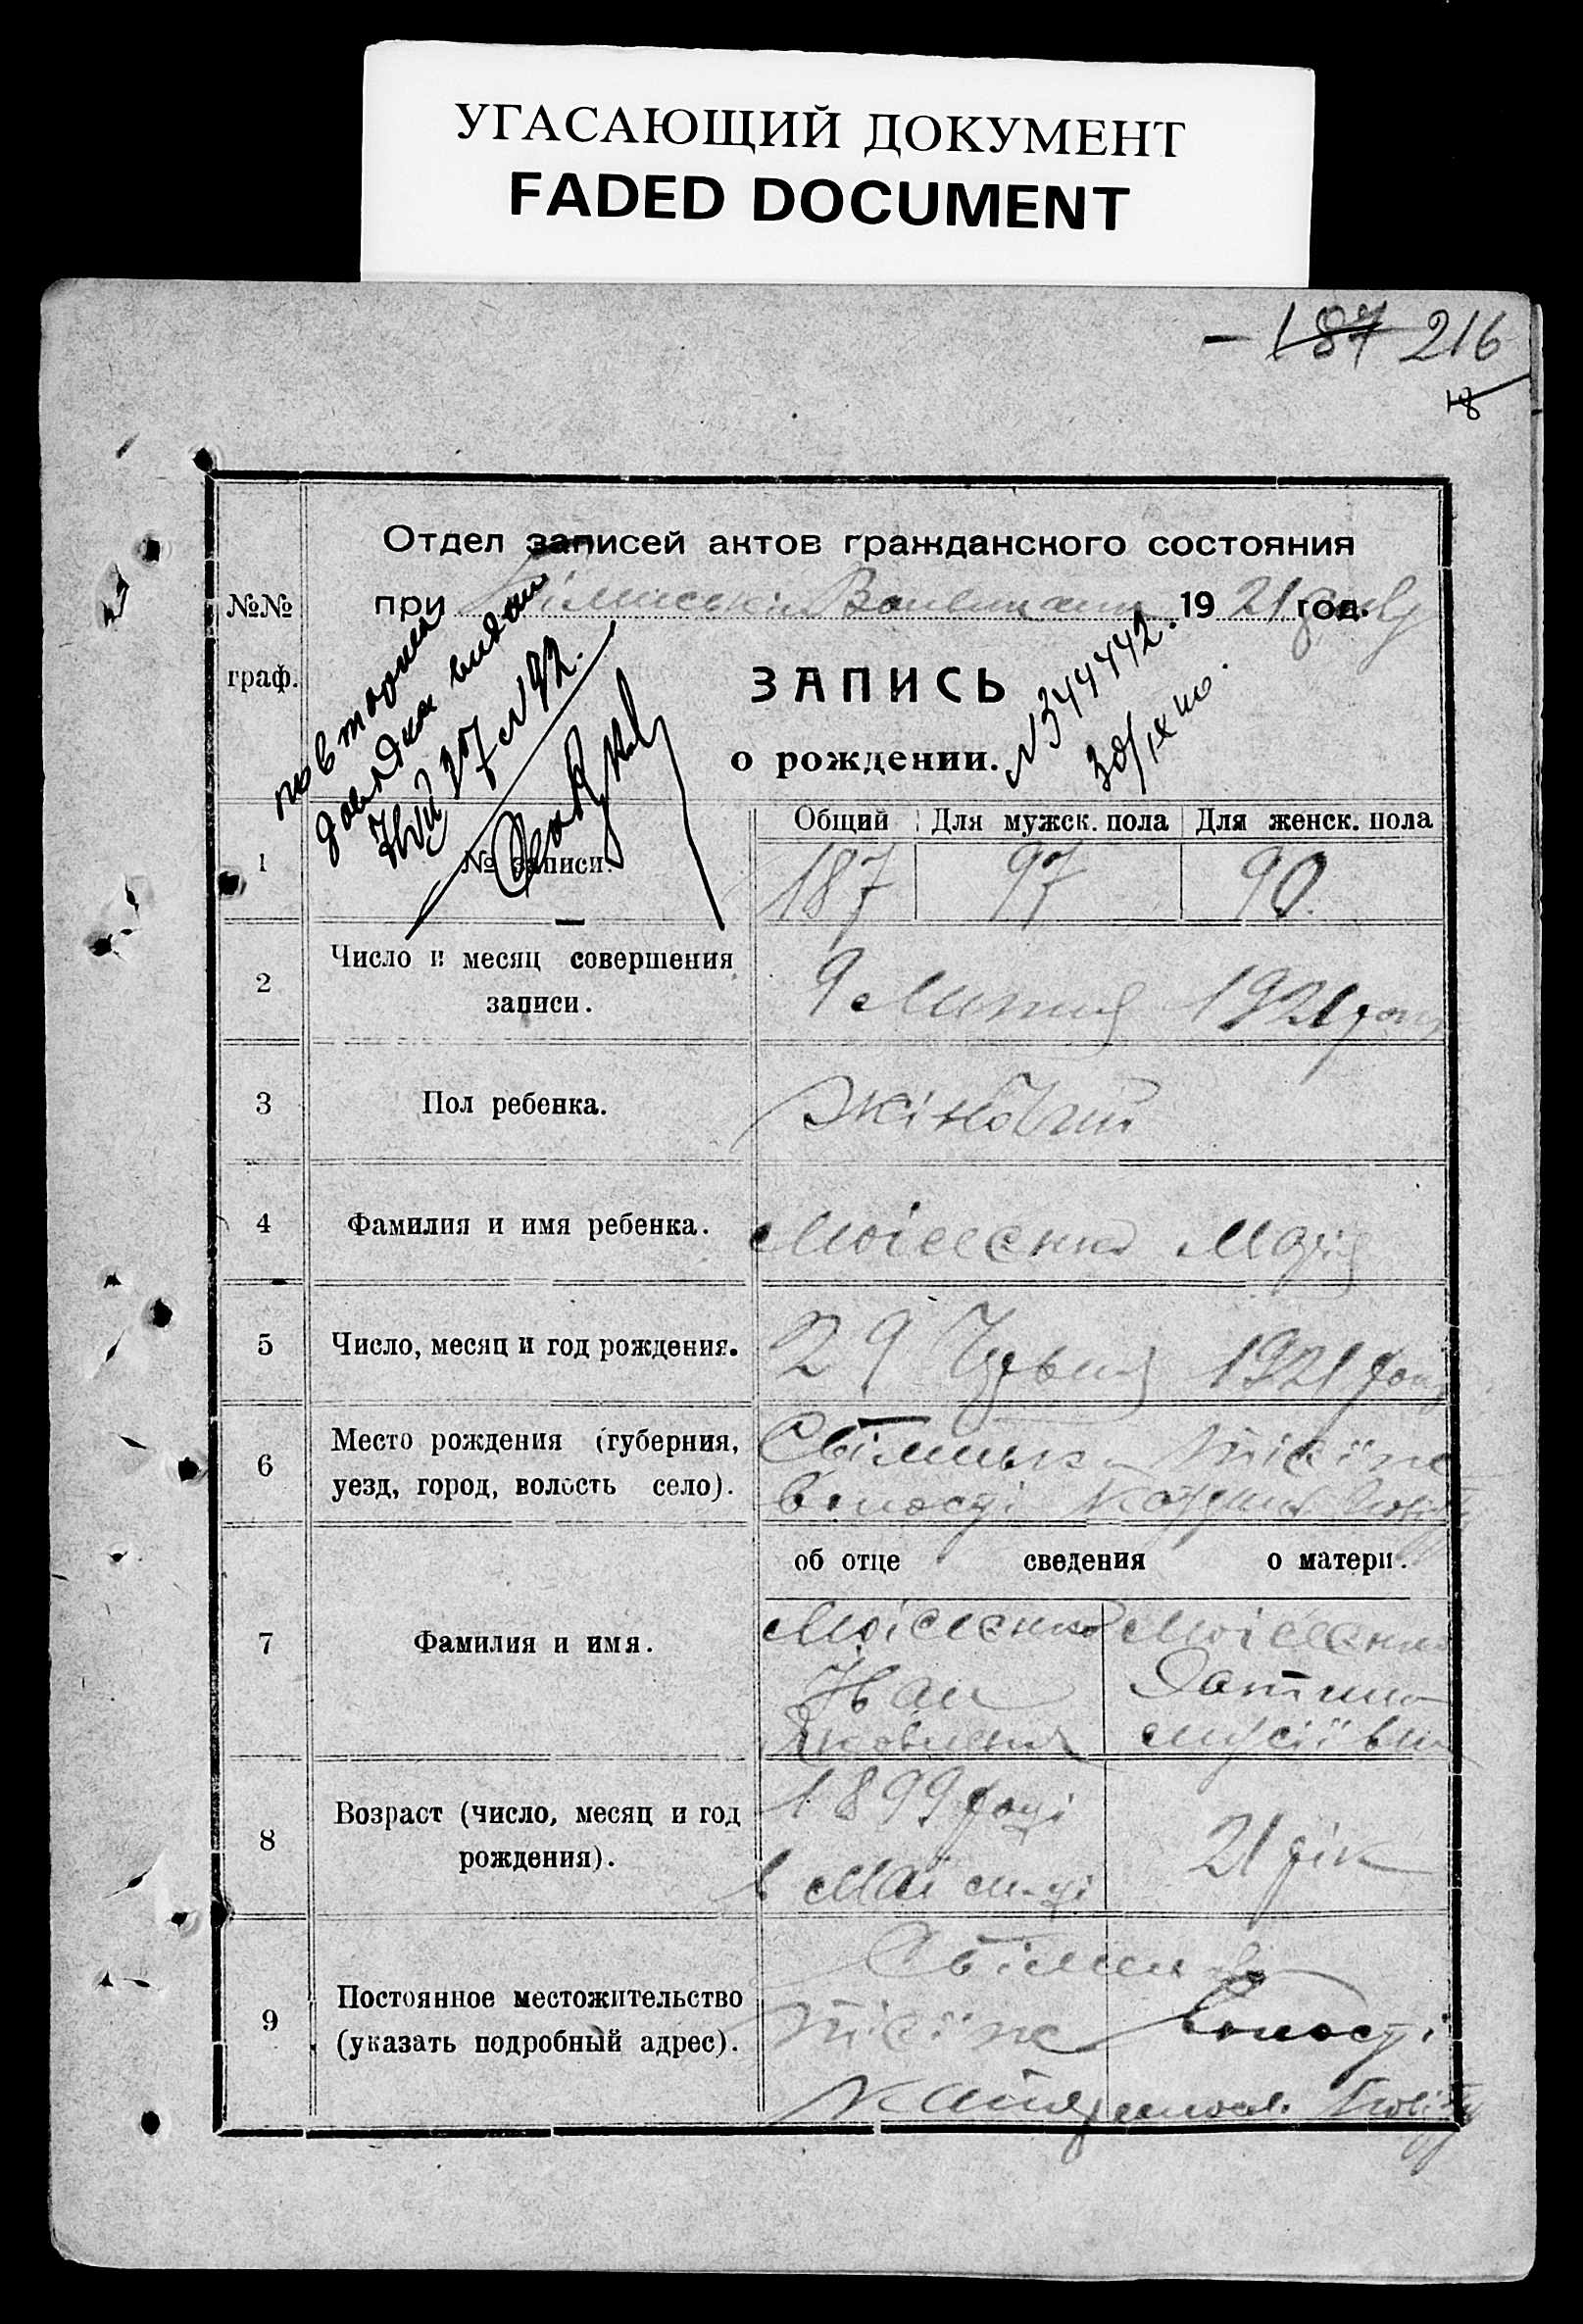 УГАСАЮЩИЙ ДОКУМЕНТ
FADED DOCUMENT
187 216
18
№№ граф.
Отдел записей актов гражданского состояния
при 1921 год.
ЗАПИСЬ
о рождении.
повторна
довідка видан
7/VII 37 №92.
№344442.
30/IX
Общий Для мужск. пола Для женск. пола
1 № записи. 187 97 90.
2 Число и месяц совершения
записи. 9 Липня 1921 року
3 Пол ребенка. Жіночий
4 Фамилия и имя ребенка. Моісеенко Марія
5 Число, месяц и год рождения. 29 Червня 1921 року
6 Место рождения (губерния,
уезд, город, волость село). волості
об отце сведения о матери.
7 Фамилия и имя. Моісеенко Моісеенко
Іван
Яковлевич Мусіївна
8 Возраст (число, месяц и год
рождения). 1899 році 21 рік
в Маі м-ці
9 Постоянное местожительство
(указать подробный адрес). волості